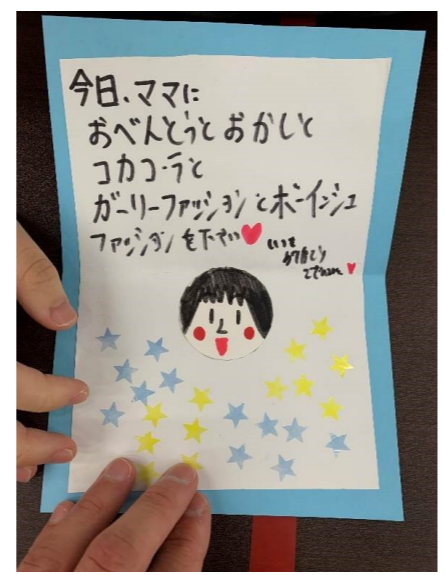 今日、ママに
おべんとうとおかしと
コカコーラと
ガーリーファッションとボーインシュ
ファッションを下さい
いつも
ありがとう